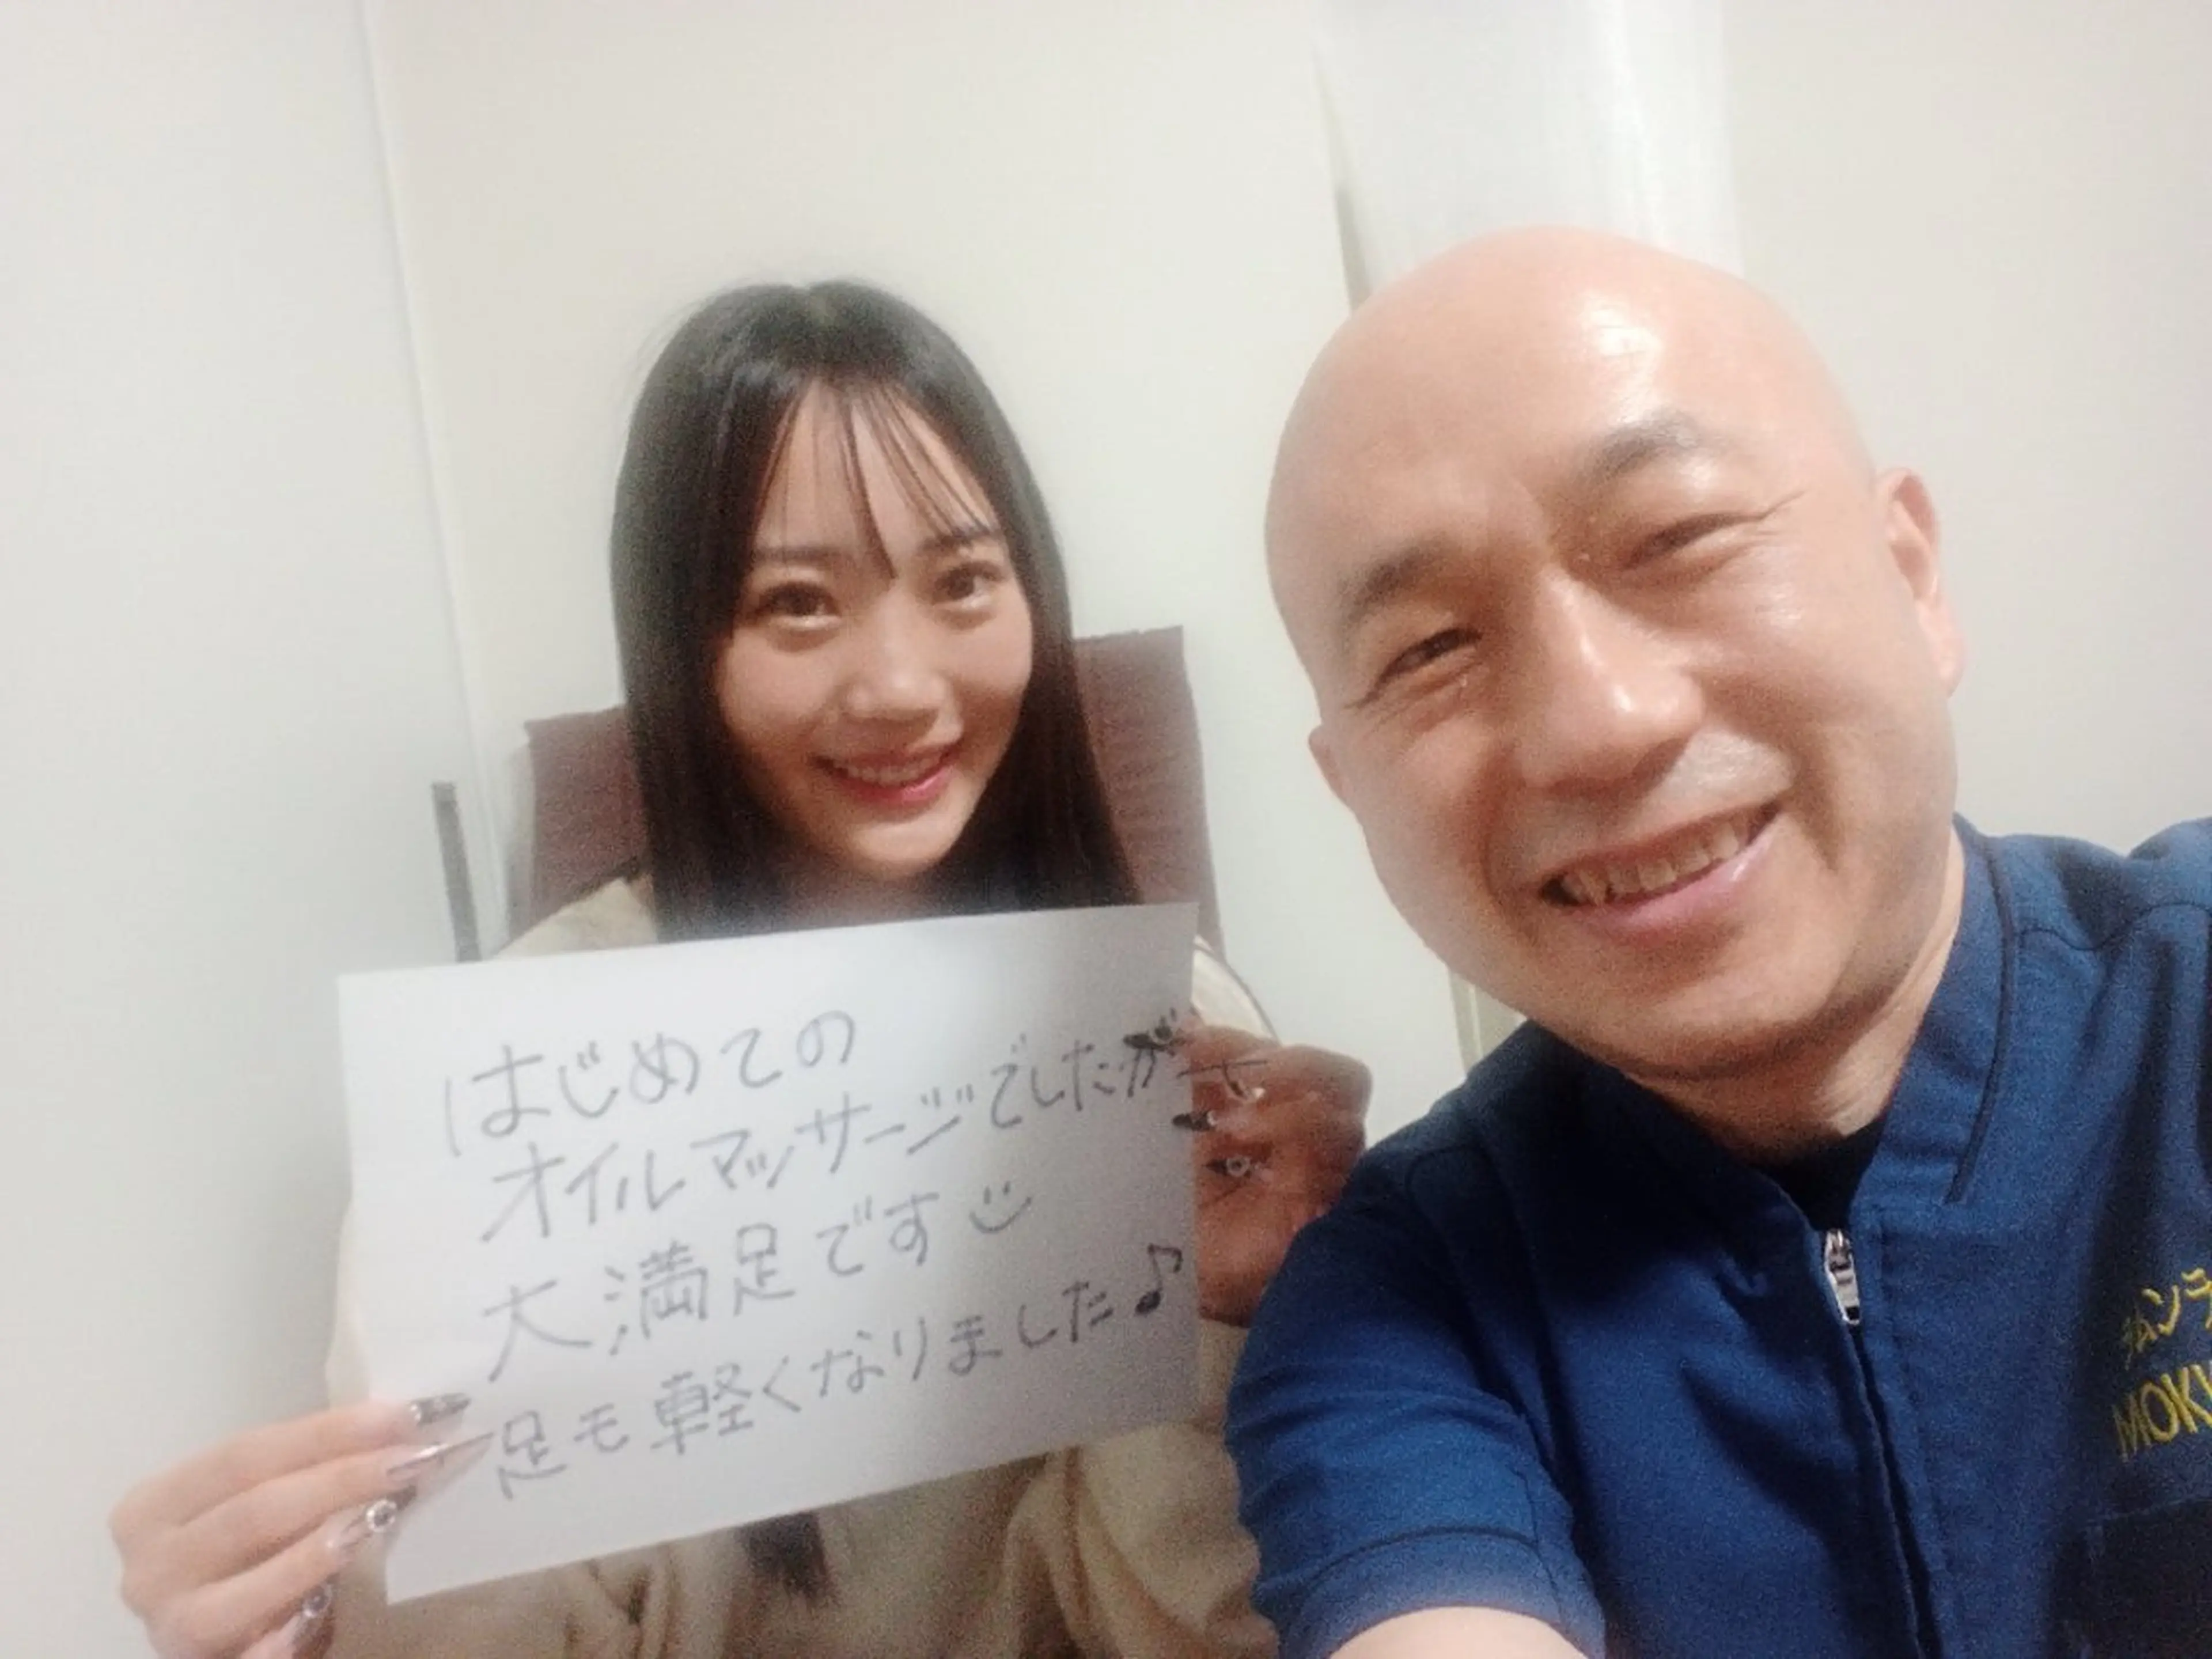 はじめての
オイルマッサージでしたが
大満足です
足も軽くなりました♪